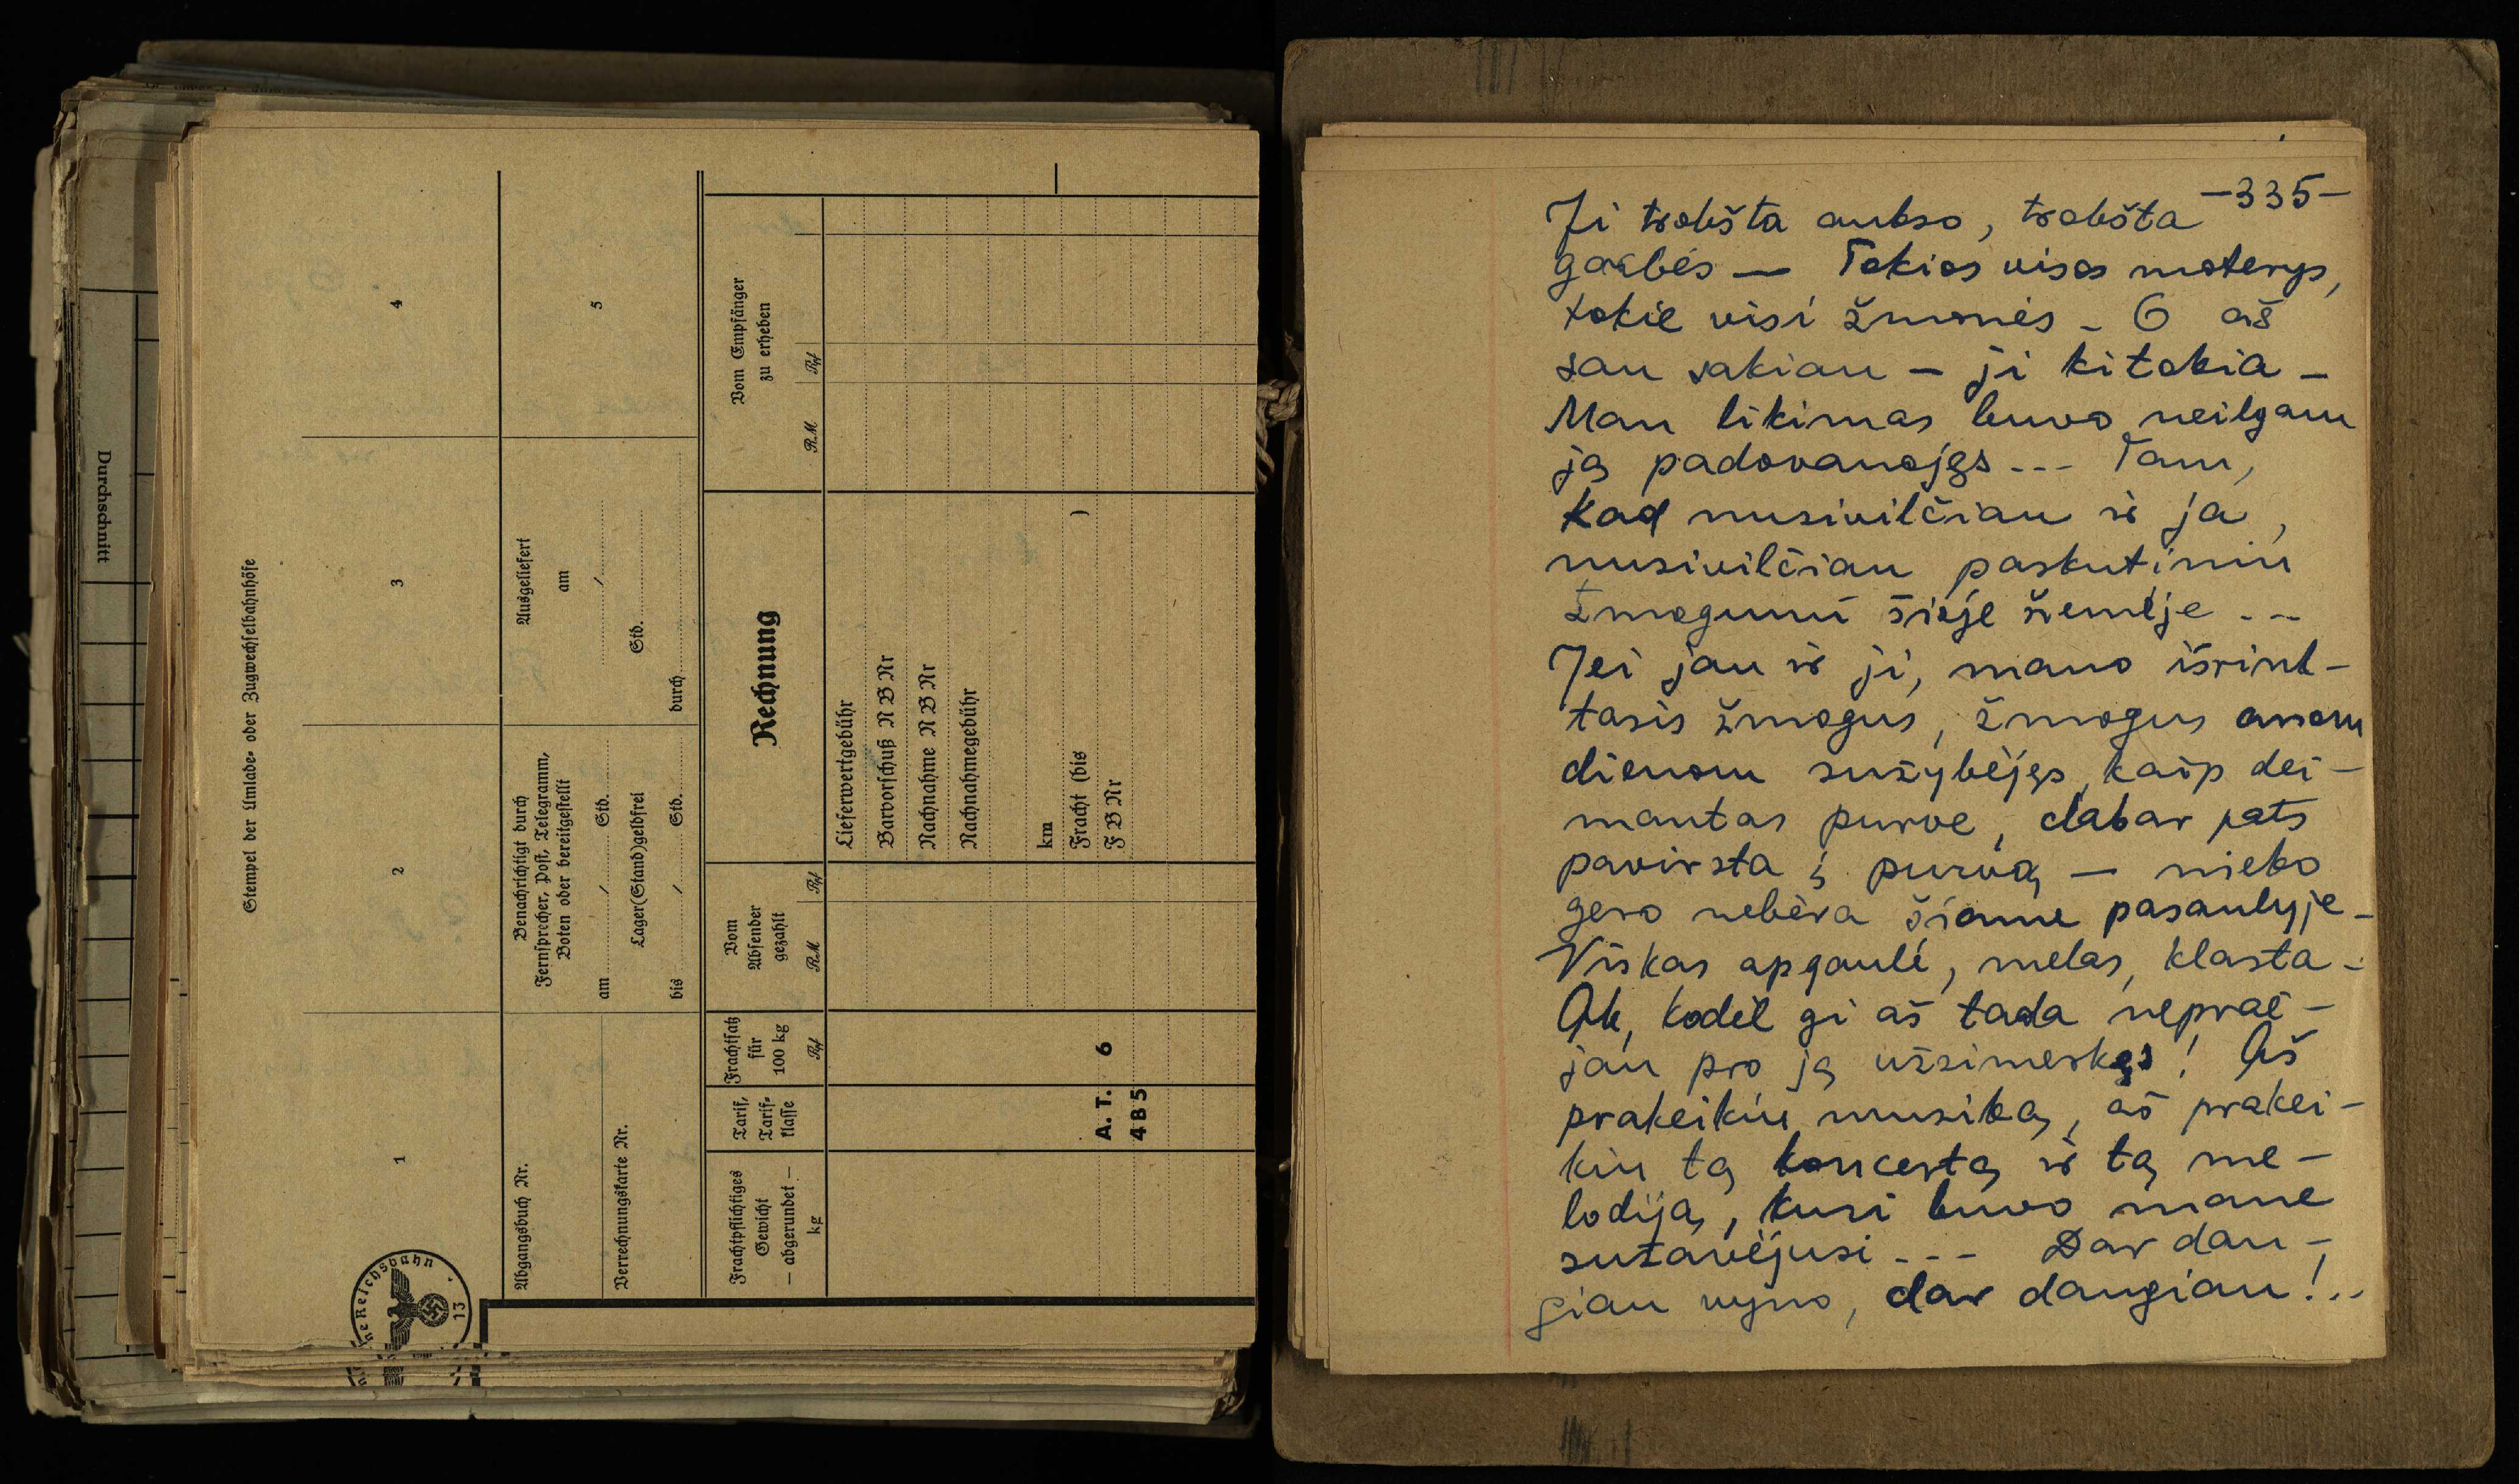 Durchschnitt
Stempel der Umlade- oder Zugwechselbahnhöfe
1
2
3
4
Abgangsbuch Nr.
Benachrichtigt durch
Fernsprecher, Post, Telegramm,
Boten oder bereitgestellt
Ausgeliefert
am
5
am / Std.
/
Verrechnungskarte Nr.
Lager(Stand)geldfrei
Std.
bis / Std.
durch
Frachtpflichtiges
Gewicht
— abgerundet —
kg
Tarif,
Tarif-
klasse
Frachtsatz
für
100 kg
Rpf
Vom
Absender
gezahlt
RM Rpf
Rechnung
Vom Empfänger
zu erheben
RM Rpf
Lieferwertgebühr
Barvorschuß N B Nr
Nachnahme N B Nr
Nachnahmegebühr
km
Fracht (bis )
A. T. 6 F B Nr
4 B 5
Reichsbahn
13
—335—
Ji trokšta aukso, trokšta
garbės — Tokios visos moterys,
tokie visi žmonės – O aš
sau sakiau – ji kitokia –
Man likimas buvo neilgam
ją padovanojęs --- Tam,
kad nusivilčiau ir ja,
nusivilčiau paskutiniu
žmogumi šioje žemėje ---
Jei jau ir ji, mano išrink-
tasis žmogus, žmogus anom
dienom sužybėjęs kaip dei-
mantas purve, dabar pats
pavirsta į purvą — nieko
gero nebėra šiame pasaulyje –
Viskas apgaulė, melas, klasta –
Ak, kodėl gi aš tada nepraė-
jau pro ją užsimerkęs! Aš
prakeikiu muziką, aš prakei-
kiu tą koncertą ir tą me-
lodiją, kuri buvo mane
sužavėjusi --- Dar dau-
giau vyno, dar daugiau!..